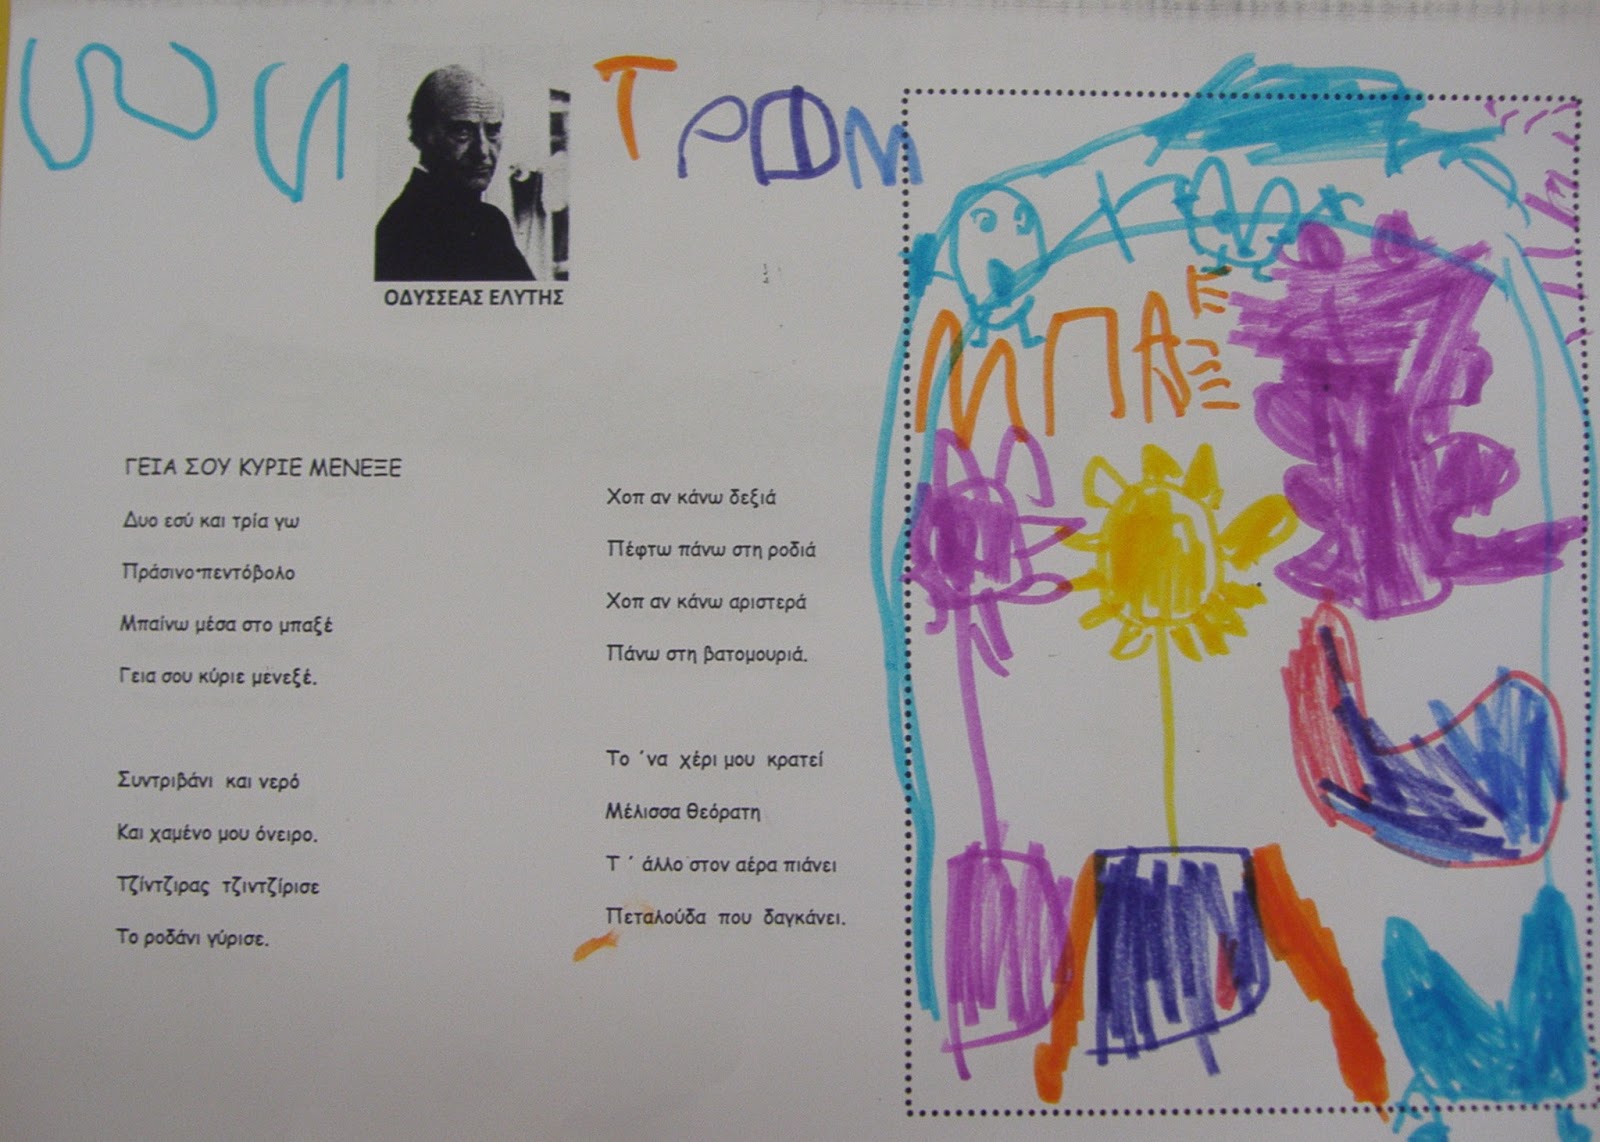 ΤΡΦΜ
ΟΔΥΣΣΕΑΣ ΕΛΥΤΗΣ
ΜΠΑΞΕ
ΓΕΙΑ ΣΟΥ ΚΥΡΙΕ ΜΕΝΕΞΕ
Δυο εσύ και τρία γω
Πράσινο πεντόβολο
Μπαίνω μέσα στο μπαξέ
Γεια σου κύριε μενεξέ.
Συντριβάνι και νερό
Και χαμένο μου όνειρο.
Τζίντζιρας τζιντζίρισε
Το ροδάνι γύρισε.
Χοπ αν κάνω δεξιά
Πέφτω πάνω στη ροδιά
Χοπ αν κάνω αριστερά
Πάνω στη βατομουριά.
Το ΄να χέρι μου κρατεί
Μέλισσα θεόρατη
Τ ΄ άλλο στον αέρα πιάνει
Πεταλούδα που δαγκάνει.